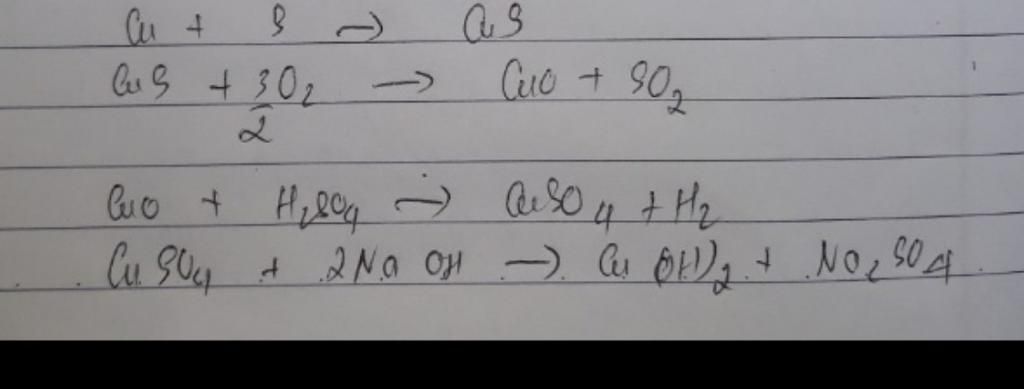 Cu + S → CuS
CuS + 3/2 O₂ → CuO + SO₂
CuO + H₂SO₄ → CuSO₄ + H₂
CuSO₄ + 2NaOH → Cu(OH)₂ + Na₂SO₄